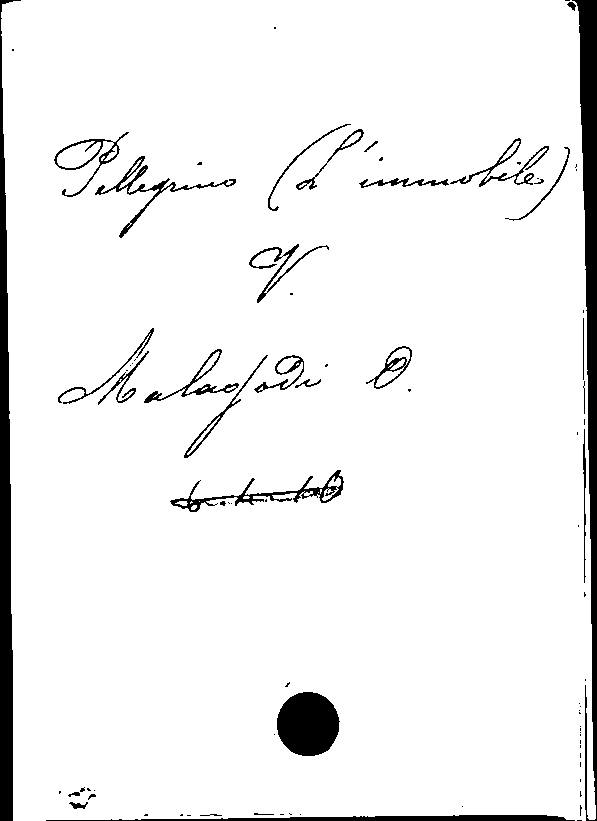 Pellegrino (L'immobile)
V.
Malagodi O.